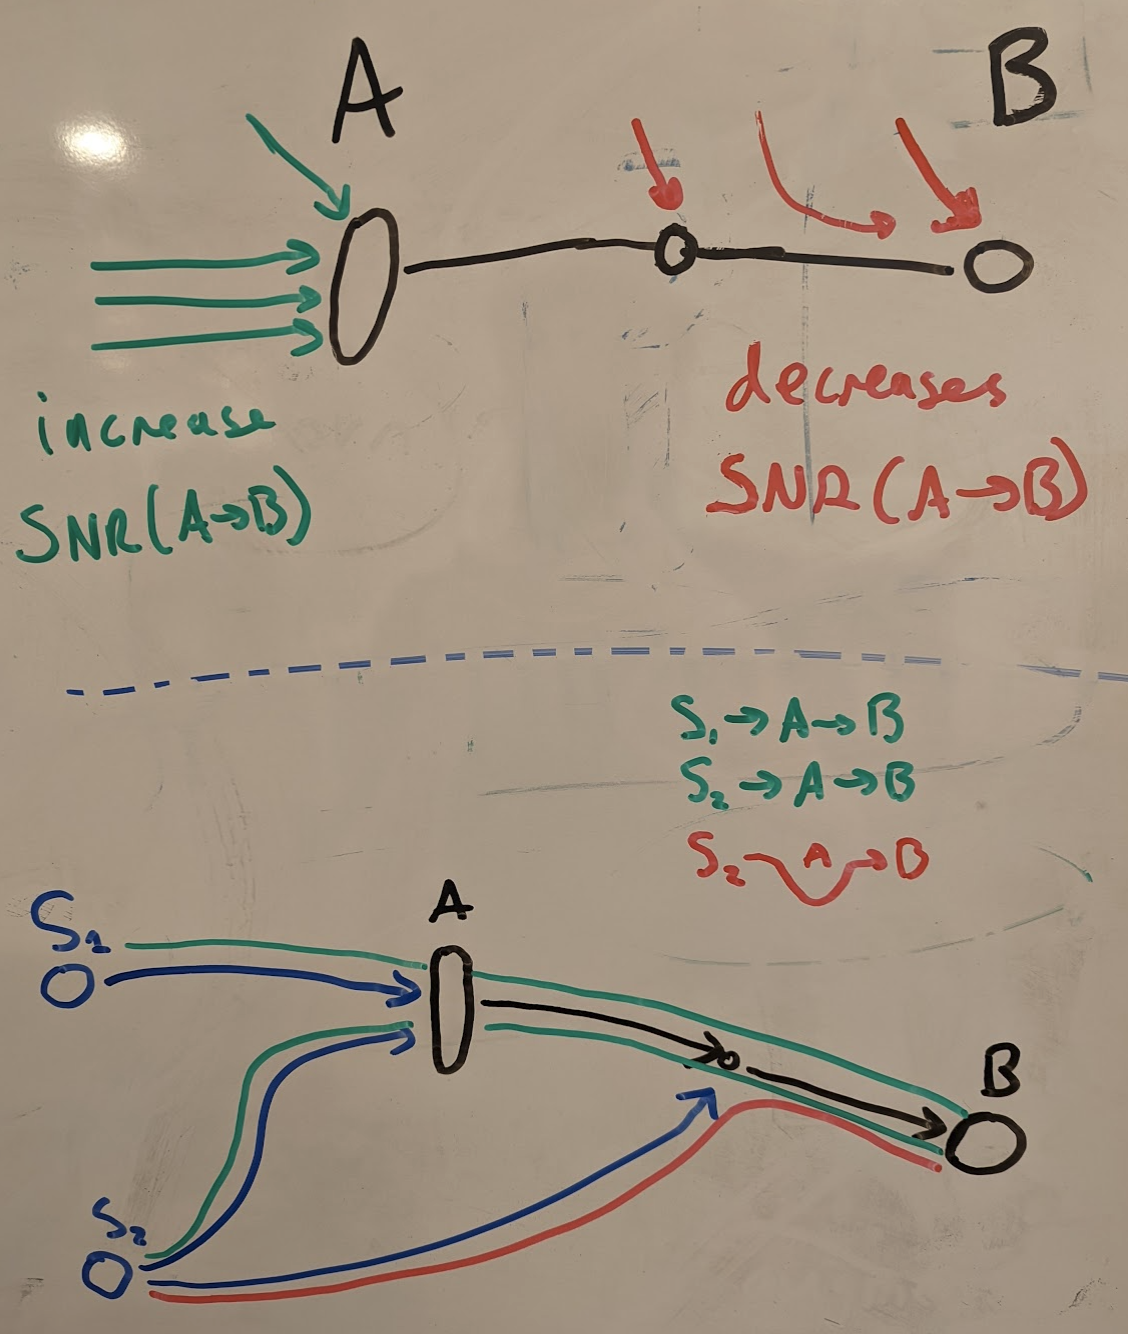 A
B
increase
SNR(A→B)
decreases
SNR(A→B)
S₁→A→B
S₂→A→B
S₂ A →B
S₁
A
B
S₂